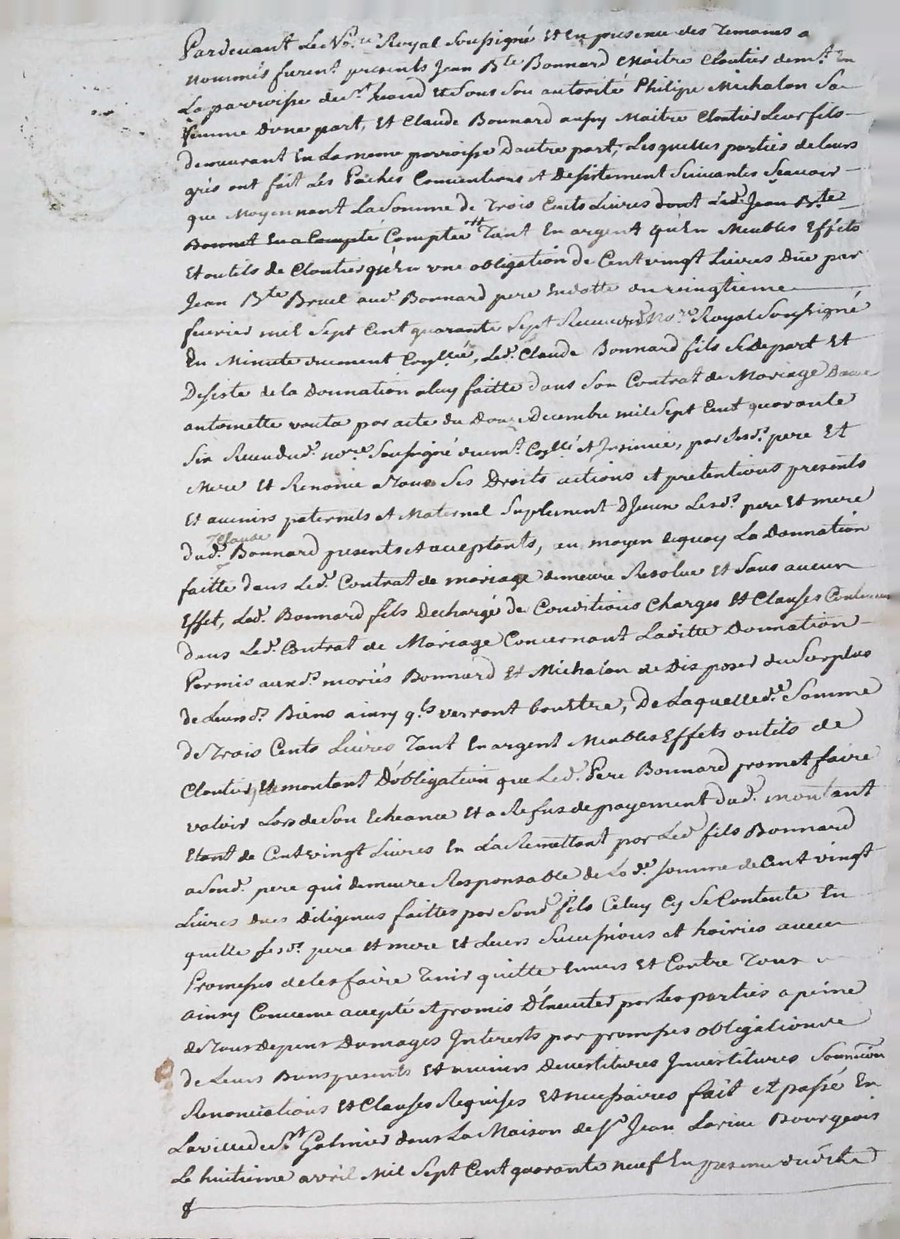 Pardevant Le No.re Royal Soussigné Et En presence des Temoins a
nommés furent presents Jean B.te Bonnard Maitre Cloutier dem.t En
La parroisse de S.t Et Sous Son autorité Philipe Michalon Sa
femme Dune part, Et Claude Bonnard aussy Maitre Cloutier Leur fils
demeurant En La meme parroisse Dautre part, Lesquelles parties de Leurs
grés ont fait Les Paches Conventions et Desistement Suivantes Scavoir
que Moyennant La Somme de Trois Cents Livres dont Led.t Jean B.te
Bonnet En a Compte Tant En argent qu'En Meubles Effets
Et outils de Cloutier qu'En vne obligation de Cent vingt Livres Düe par
Jean B.te Bruel aud. Bonnard pere En datte du vingtieme
fevrier mil Sept Cent quarante Sept Receue No.re Royal Soussigné
En Minute Led. Claude Bonnard fils Se Depart Et
Desiste de la Donnation a luy faitte dans Son Contrat de Mariage Davec
antoinette par acte du Decembre mil Sept Cent quarante
Six Receu dud. no.re Soussigné et Insinué, par Sesd.s pere Et
Mere Et Renonce a Tous Ses Droits actions et pretentions presents
Et avenirs paternels et Maternel Suplement Lesd.s pere Et mere
Claude
dud. Bonnard presents et acceptants, au moyen dequoy La Donnation
faitte dans Led. Contrat de mariage demeure Resolue Et Sans aucun
Effet, Led. Bonnard fils Dechargé de Conditions Charges Et Clauses
dans Led. Contrat de Mariage Concernant Laditte Donnation
Permis auxd.s mariés Bonnard Et Michalon de Disposer du Surplus
de Leursd.s Biens ainsy q.ls verront bon Etre, De Laquelled.e Somme
de Trois Cents Livres Tant En argent Meubles Effets outils de
Cloutier, Et montant D'obligation que Led. Pere Bonnard promet faire
valoir Lors de Son Echeance Et a Refus de payement dud. montant
Etant de Cent vingt Livres En La Remettant par Led. fils Bonnard
a Sond. pere qui demeure Responsable de Lad.e Somme de Cent vingt
Livres Diligences faittes par Sond. fils Celuy Cy Se Contente En
quitte Sesd.s pere Et mere Et Leurs Successions et hoiries avec
Promesse de les faire Tenir quitte Envers Et Contre Tous
Ainsy Convenu accepté et promis par Les parties a peine
de Tous Depens Dommages Interests par promesses obligation de
de Leurs Biens presents Et avenirs Devestitures Investitures Soumission
Renonciations Et Clauses Requises Et necessaires fait et passé En
La ville de S.t Galmier dans La Maison de S.r Jean Bourgeois
Le huitieme avril Mil Sept Cent quarante neuf En presence